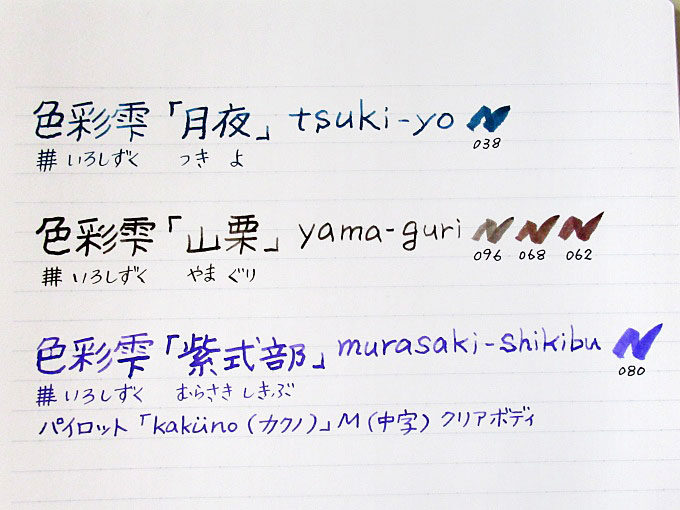 色彩雫「月夜」 tsuki-yo
038
#いろしずく つき よ
色彩雫「山栗」 yama-guri
096 068 062
#いろしずく やま ぐり
色彩雫「紫式部」 murasaki-shikibu
080
#いろしずく むらさき しきぶ
パイロット「kaküno(カクノ)」M(中字) クリアボディ